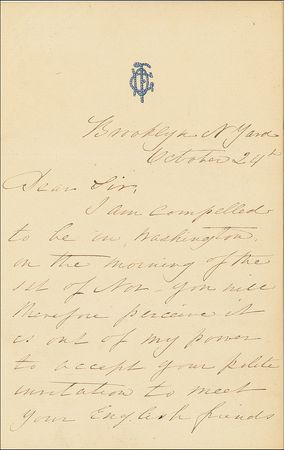 Brooklyn N Yard
October 29th
Dear Sir,
I am compelled
to be in Washington
on the morning of the
1st of Nov - you will
therefore perceive it
is out of my power
to accept your polite
invitation to meet
your English friends